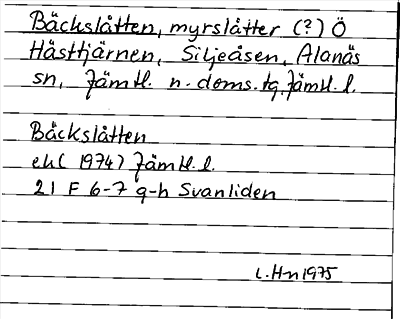 Bäckslåtten, myrslåtter (?) Ö
Hästtjärnen, Siljeåsen, Alanäs
sn, Jämtl. n. doms. tg, Jämtl. l.
Bäckslåtten
ek ( 1974) Jämtl. l.
21 F 6-7 g-h Svanliden
L. Hn 1975